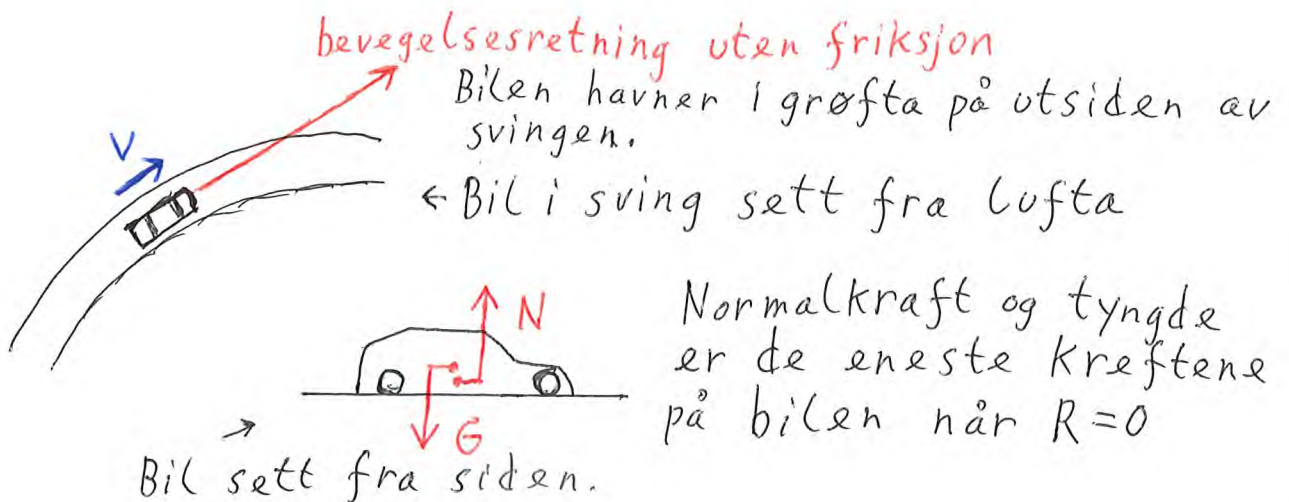 bevegelsesretning uten friksjon
Bilen havner i grøfta på utsiden av
svingen.
V
← Bil i sving sett fra lufta
N
Normalkraft og tyngde
er de eneste kreftene
på bilen når R=0
G
→
Bil sett fra siden.